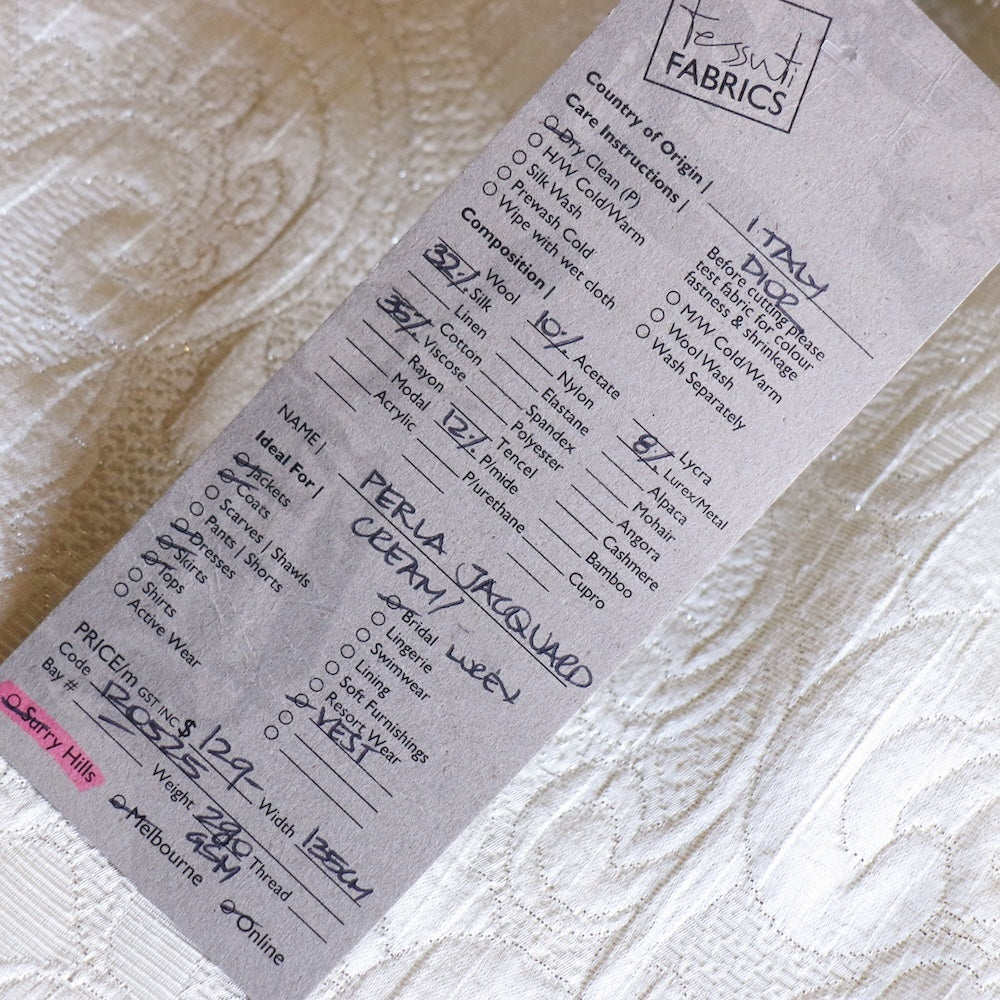 tessuti
FABRICS
Country of Origin | ITALY
DIOR
Care Instructions |
Dry Clean (P)
H/W Cold/Warm
Silk Wash
Prewash Cold
Wipe with wet cloth
Before cutting please
test fabric for colour
fastness & shrinkage
M/W Cold/Warm
Wool Wash
Wash Separately
Composition |
Wool
32% Silk
Linen
Cotton
38% Viscose
Rayon
Modal
Acrylic
10% Acetate
Nylon
Elastane
Spandex
Polyester
Tencel
12% P/mide
P/urethane
Lycra
8% Lurex/Metal
Alpaca
Mohair
Angora
Cashmere
Bamboo
Cupro
NAME | PERLA JACQUARD
CREAM/ LUREX
Ideal For |
Jackets
Coats
Scarves | Shawls
Pants | Shorts
Dresses
Skirts
Tops
Shirts
Active Wear
Bridal
Lingerie
Swimwear
Lining
Soft Furnishings
Resort Wear
VEST
PRICE/m GST INC $ 129- Width 135cm
Code 120525 Weight 290 GSM Thread
Bay #
Surry Hills Melbourne Online